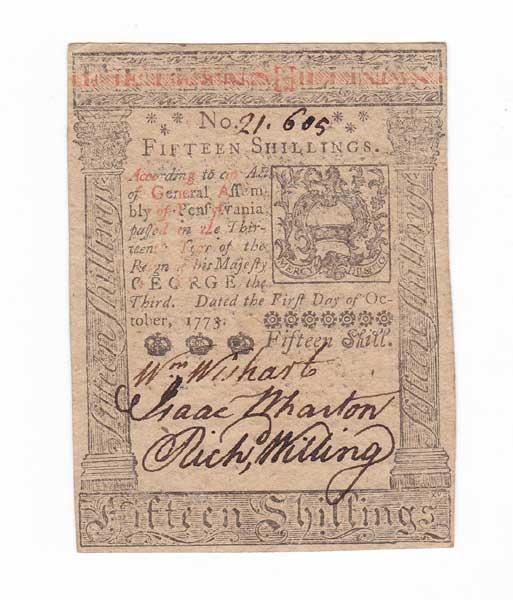 No. 21.605
FIFTEEN SHILLINGS.
According to an Act
of General Assem-
bly of Pensylvania,
passed in the Thir-
teenth Year of the
Reign of his Majesty
GEORGE the
Third. Dated the First Day of Oc-
tober, 1773.
MERCY JUSTICE
Fifteen Shill.
Wm Wishart
Isaac Wharton
Richd. Willing
Fifteen Shillings
Fifteen Shillings
Fifteen Shillings